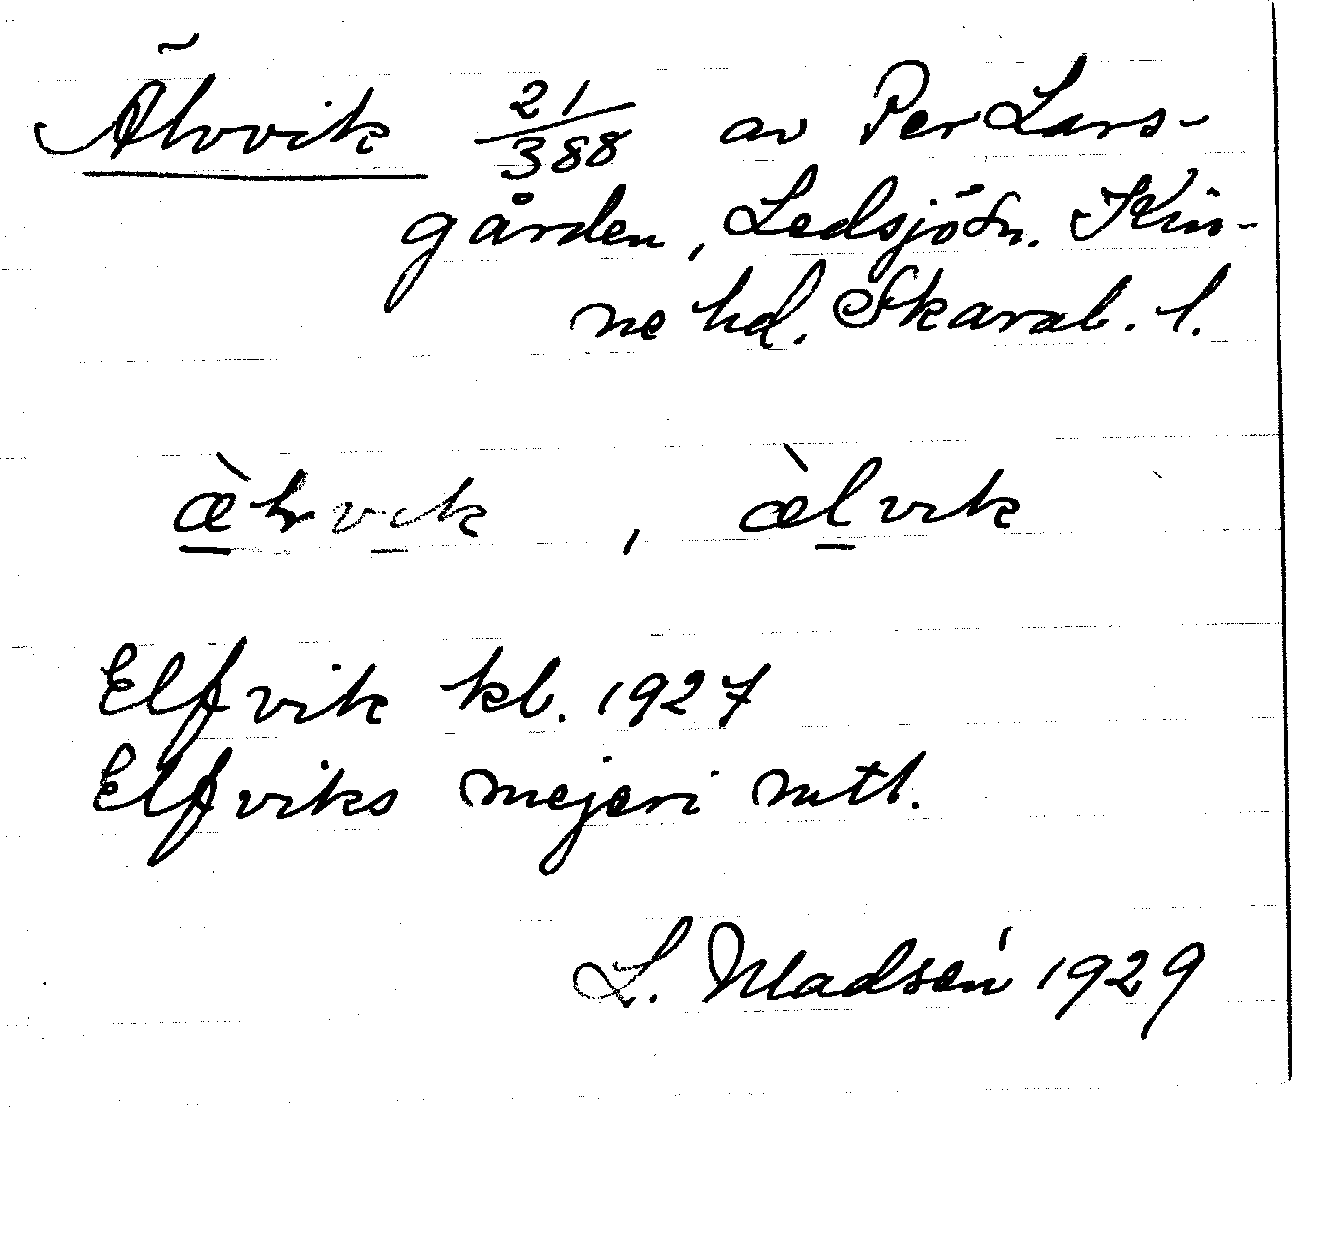 Älvvik 21/388 av Per Lars-
gården, Ledsjö sn. Kin-
ne hd. Skarab. l.
æ̀lvvik, æ̀lvik
Elfvik kb. 1927
Elfviks mejeri mtl.
L. Madsén 1929